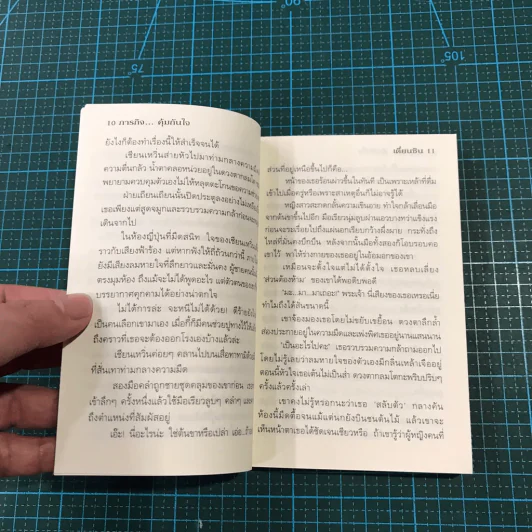 90
75
105
10 ภารกิจ... คุ้มกันใจ
ยังไงก็ต้องทำเรื่องนี้ให้สำเร็จจนได้
เธียนเหวินส่ายหัวไปมาท่ามกลางความมืด
ความตื่นกลัว น้ำตาคลอหน่วยอยู่ในดวงตากลมโต
พยายามควบคุมตัวเองไม่ให้หลุดตะโกนขอความ
ฝ่ายเถียนเถียนนั้นปิดประตูลงอย่างไม่
เธอเพียงแต่สูดจมูกและรวบรวมความกล้าก่อน
เดินจากไป
ในห้องญี่ปุ่นที่มืดสนิท ใจของเธียนเหวิน
ราวกับเสียงฟ้าร้อง แต่หากฟังให้ถี่ถ้วนกว่านี้
ยังมีเสียงลมหายใจที่ลึกยาวและมั่นคง ผู้ชายคน
ตรงมุมห้อง ถึงแม้จะไม่ได้พูดอะไร แต่ตัวตนของ
บรรยากาศคุกคามได้อย่างน่าตกใจ
ไม่ได้การล่ะ จะหนีไม่ได้ด้วย! ดีร้ายยังไง
เป็นคนเลือกเขามาเอง เมื่อกี้ก็มีคนช่วยปูทางไว้ให้
ถึงคราวที่เธอจะต้องออกโรงเองบ้างแล้วล่ะ
เธียนเหวินค่อยๆ คลานไปบนเสื่อทาทามิ
ที่สั่นเทาท่ามกลางความมืด
สองมือคลำถูกชายชุดคลุมของเขาก่อน
เข้าลึกๆ ครั้งหนึ่งแล้วใช้มือเรียวลูบๆ คลำๆ
ถึงตำแหน่งที่สัมผัสอยู่
เอ๊ะ! นี่อะไรน่ะ ใช่ต้นขาหรือเปล่า เอ่อ...
เตี่ยนซิน 11
ส่วนที่อยู่เหนือขึ้นไปก็คือ...
หน้าของเธอร้อนผ่าวขึ้นในทันที เป็นเพราะเหล้าที่ดื่ม
เข้าไปเมื่อครู่หรือเพราะสาเหตุอื่นก็ไม่อาจรู้ได้
หญิงสาวสะกดกลั้นความเขินอาย ทำใจกล้าเลื่อนมือ
จากต้นขาขึ้นไปอีก มือเรียวนุ่มลูบผ่านเอวบางทว่าแข็งแรง
ก่อนจะระเรื่อยไปถึงแผ่นอกเรียบกว้างผึ่งผาย กระทั่งถึง
ไหล่ที่มั่นคงบึกบึน หลังจากนั้นมือทั้งสองก็โอบรอบคอ
เขาไว้ พาให้ร่างกายของเธออยู่ในอ้อมอกของเขา
เหมือนจะตั้งใจแต่ไม่ได้ตั้งใจ เธอหลบเลี่ยง
‘ส่วนต้องห้าม’ ของเขาได้พอดิบพอดี
“มะ...มา...มาเถอะ!” พระเจ้า นี่เสียงของเธอเหรอเนี่ย
ทำไมถึงได้สั่นขนาดนี้
เขาจ้องมองเธอโดยไม่ขยับเขยื้อน ดวงตาลึกล้ำ
ส่องประกายอยู่ในความมืดและเพ่งพิศเธออยู่นานแสนนาน
“เป็นอะไรไปคะ” เธอรวบรวมความกล้าถามออกไป
โดยไม่รู้เลยว่าลมหายใจของตัวเองมีกลิ่นเหล้าเจืออยู่
ตอนนี้หัวใจเธอเต้นไม่เป็นส่ำ ดวงตากลมโตกะพริบปริบๆ
ครั้งแล้วครั้งเล่า
เขาคงไม่รู้หรอกนะว่าเธอ ‘สลับตัว’ กลางคัน
ห้องนี้มืดตื้อจนแม้แต่นกยังบินชนต้นไม้ แล้วเขาจะ
เห็นหน้าตาเธอได้ชัดเจนเชียวหรือ ถ้าเขารู้ว่าผู้หญิงคนที่